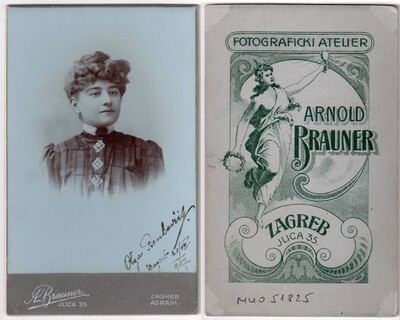 A. Brauner
JLICA 35
ZAGREB
AGRAM.
FOTOGRAFICKI ATELIER
ARNOLD
BRAUNER
ZAGREB
JLICA 35.
MUO 51825